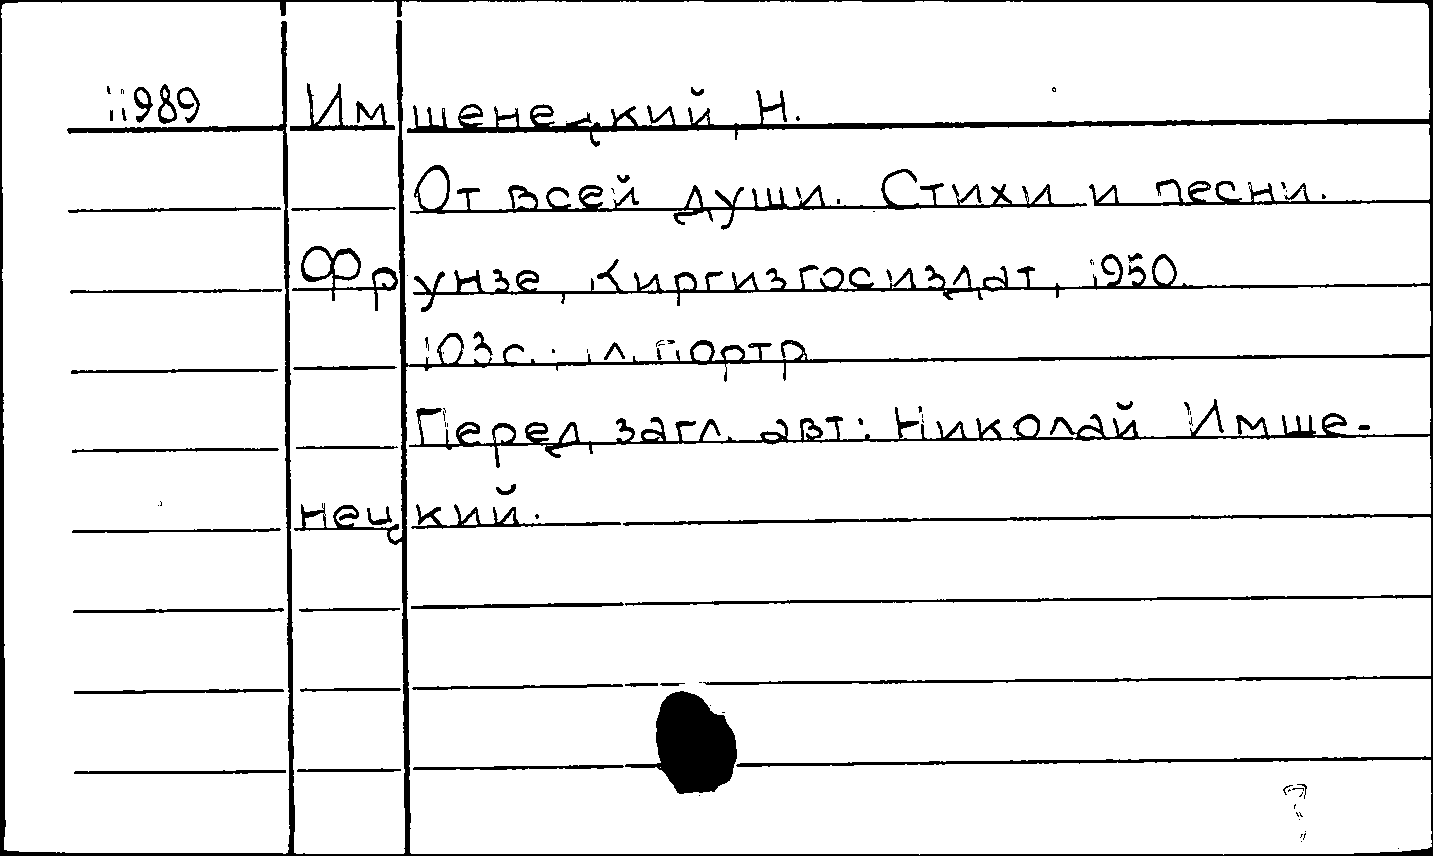 11989 Имшенецкий, Н.
От всей души. Стихи и песни.
Фрунзе, Киргизгосиздат, 1950.
103с.; 1л. портр
Перед загл. авт: Николай Имше-
нецкий.